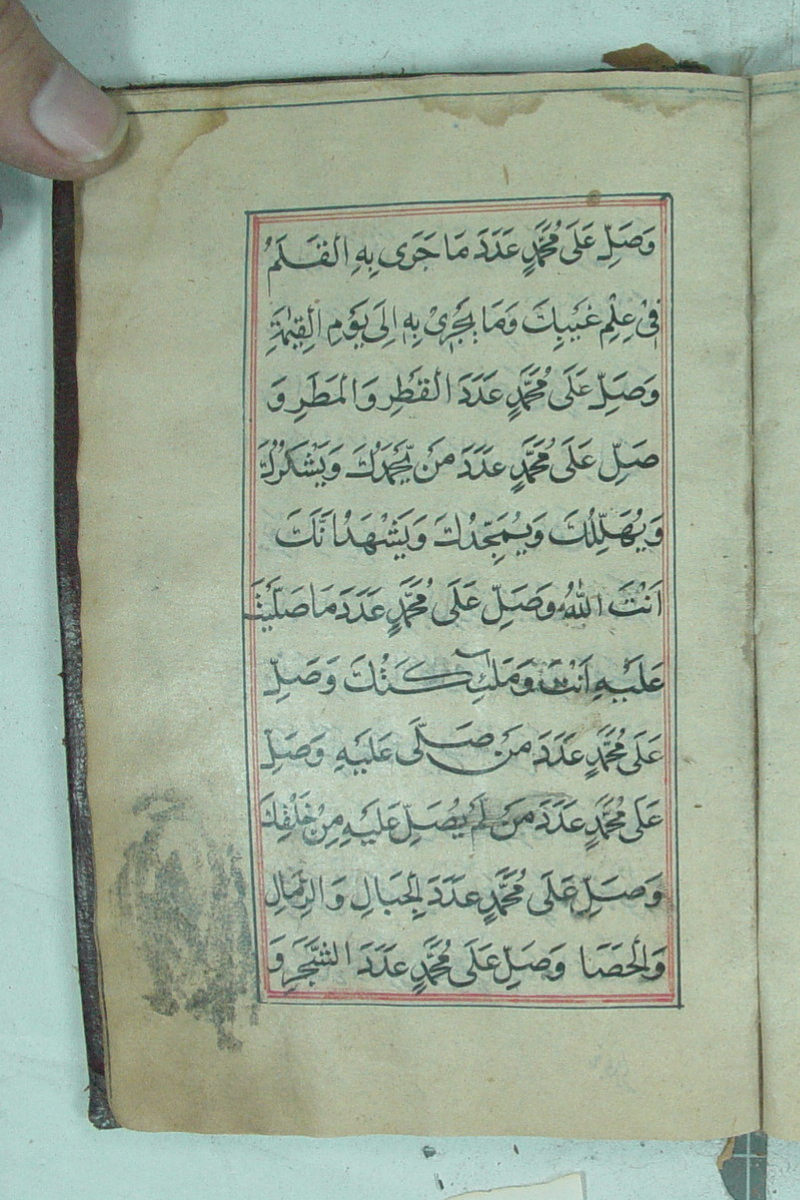 وَصَلِّ عَلَى مُحَمَّدٍ عَدَدَ مَا جَرَى بِهِ الْقَلَمُ
فِى عِلْمِ غَيْبِكَ وَمَا يَجْرِىْ بِهٖ اِلَى يَوْمِ الْقِيٰمَةِ
وَصَلِّ عَلَى مُحَمَّدٍ عَدَدَ الْقَطْرِ وَالْمَطَرِ وَ
صَلِّ عَلَى مُحَمَّدٍ عَدَدَ مَنْ يَّحْمَدُكَ وَيَشْكُرُكَ
وَيُهَلِّلُكَ وَيُمَجِّدُكَ وَيَشْهَدُ اَنَّكَ
اَنْتَ اللّٰهُ وَصَلِّ عَلَى مُحَمَّدٍ عَدَدَ مَا صَلَّيْتَ
عَلَيْهِ اَنْتَ وَمَلٰٓئِكَتُكَ وَصَلِّ
عَلَى مُحَمَّدٍ عَدَدَ مَنْ صَلَّى عَلَيْهِ وَصَلِّ
عَلَى مُحَمَّدٍ عَدَدَ مَنْ لَمْ يُصَلِّ عَلَيْهِ مِنْ خَلْقِكَ
وَصَلِّ عَلَى مُحَمَّدٍ عَدَدَ الْجِبَالِ وَالرِّمَالِ
وَالْحَصَا وَصَلِّ عَلَى مُحَمَّدٍ عَدَدَ الشَّجَرِ وَ